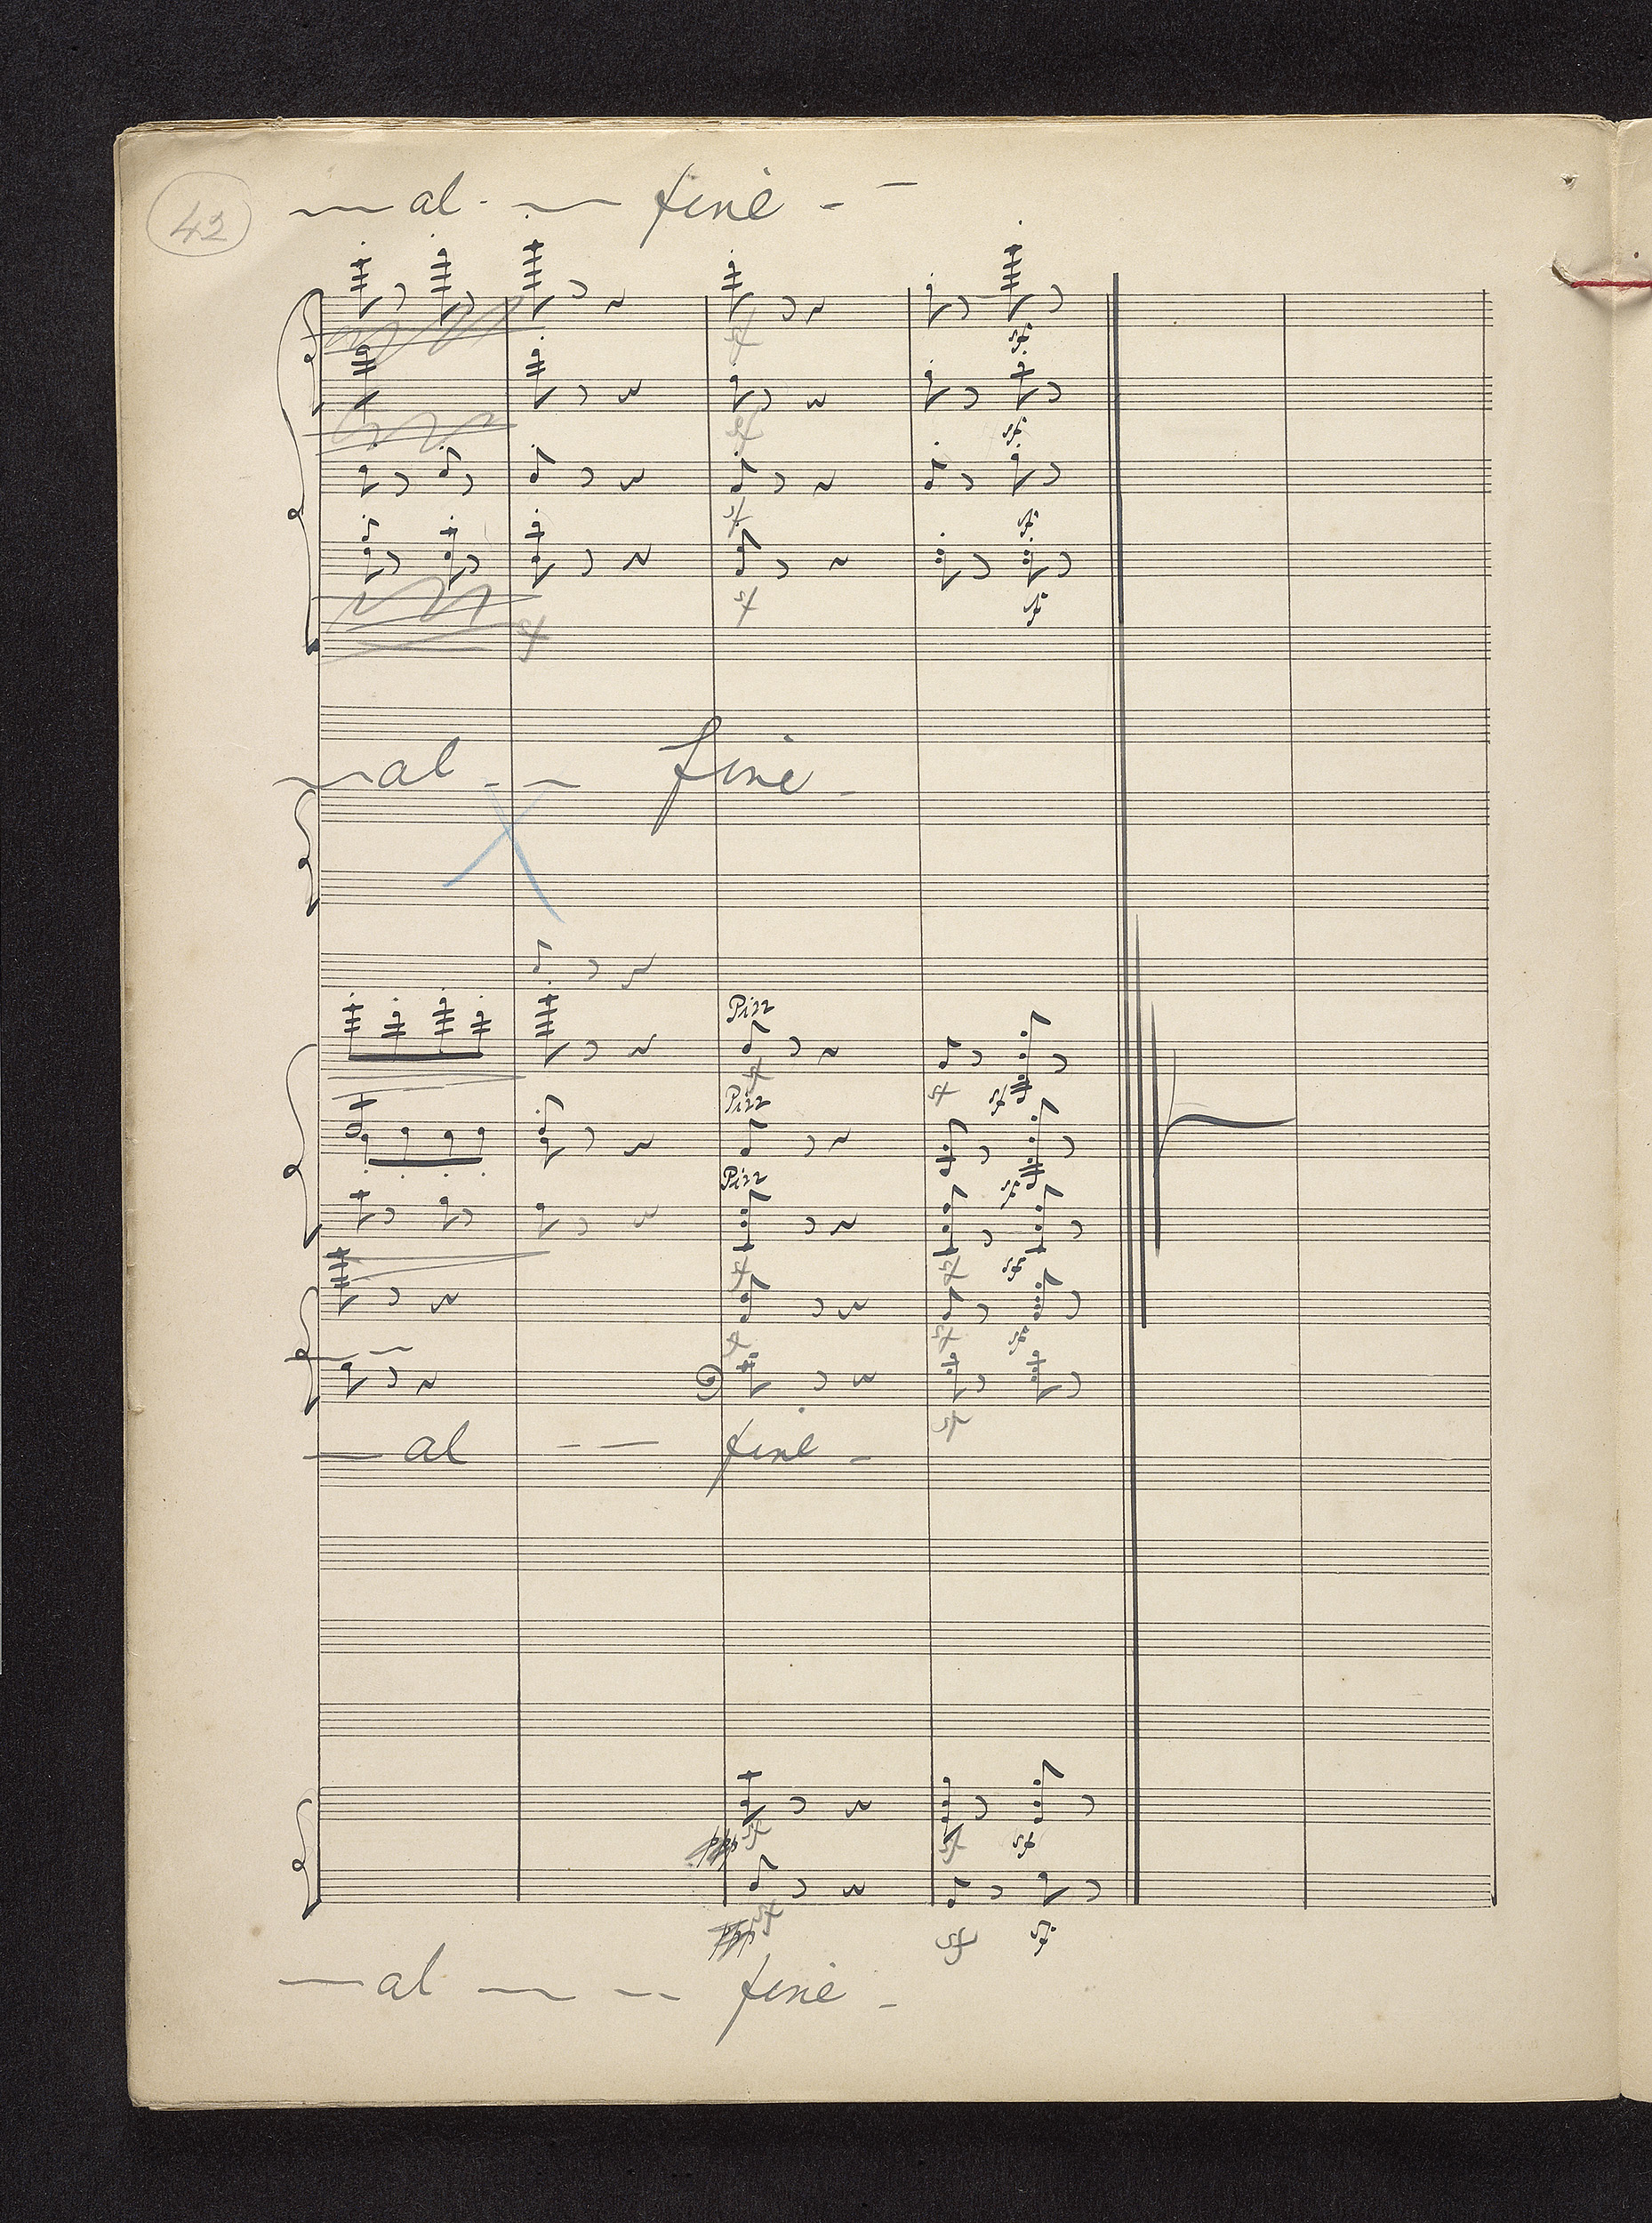 42
al fine
sf
sf
sf
sf
sf
sf
sf
sf
sf
al fine
Pizz
sf
sf sf
Pizz
sf
Pizz
sf sf sf
sf sf sf
sf
al fine
sf sf sf
sf sf sf
al fine